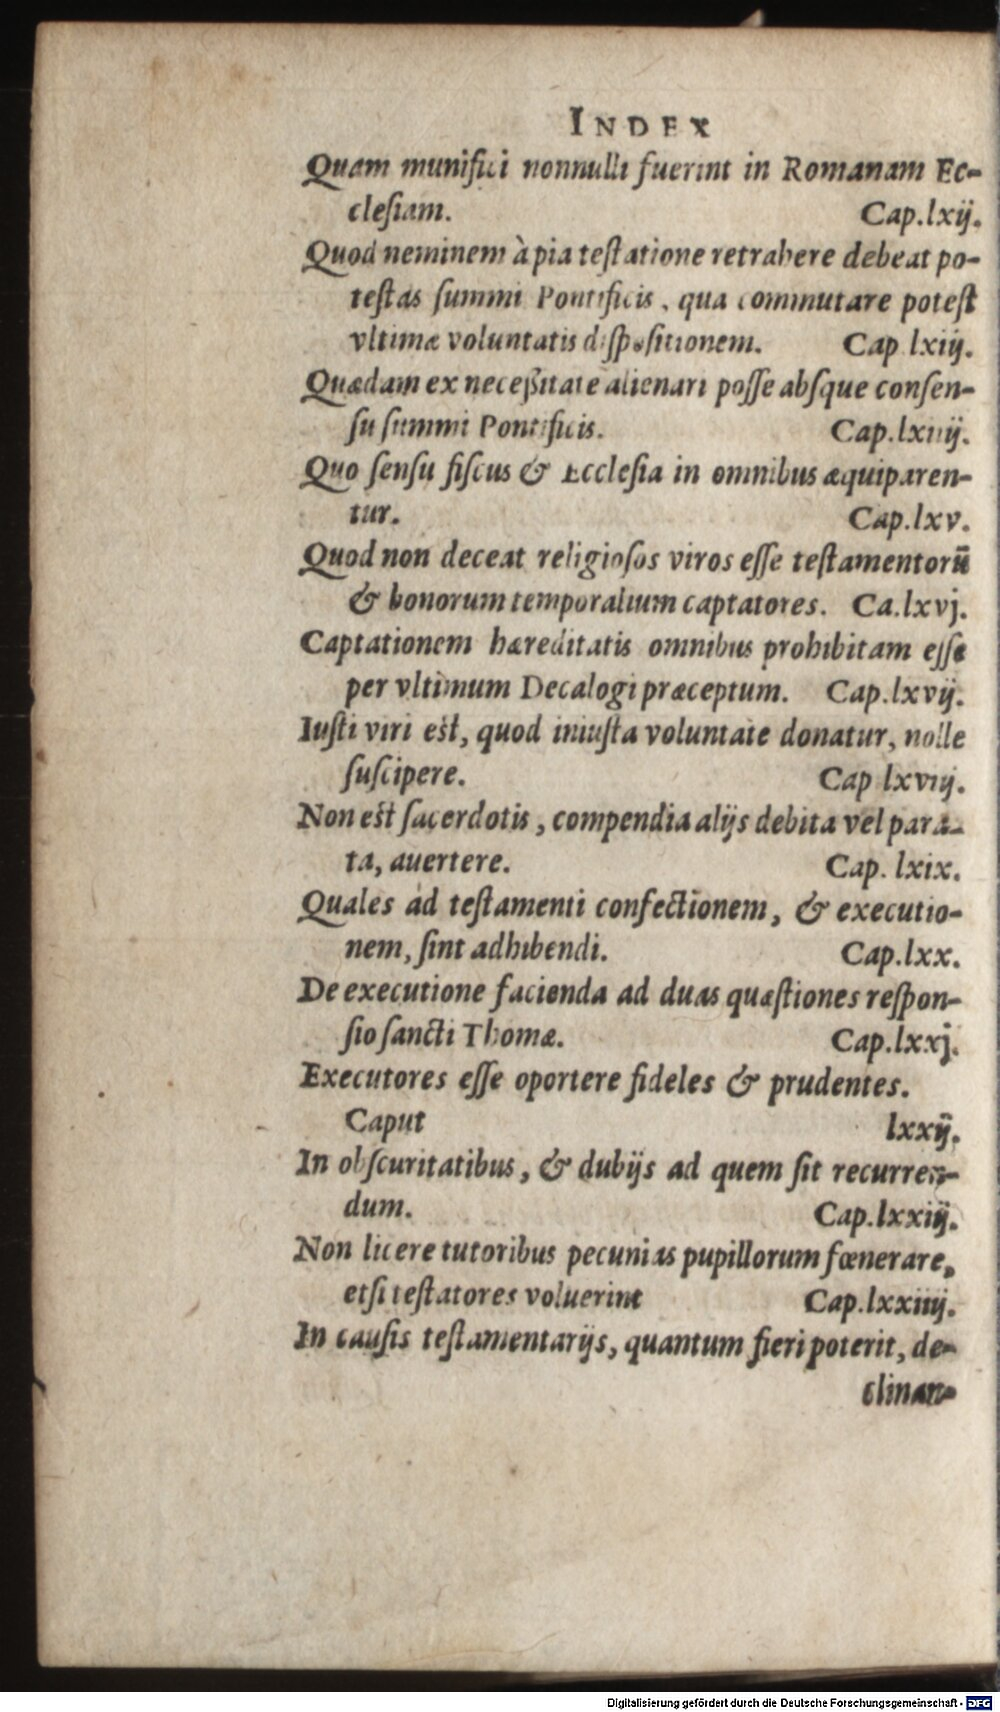 INDEX
Quam munifici nonnulli fuerint in Romanam Ec-
clesiam. Cap.lxij.
Quod neminem à pia testatione retrahere debeat po-
testas summi Pontificis, qua commutare potest
vltimæ voluntatis dispositionem. Cap lxiij.
Quædam ex neceßitate alienari posse absque consen-
su summi Pontificis. Cap.lxiiij.
Quo sensu fiscus & Ecclesia in omnibus æquiparen-
tur. Cap.lxv.
Quod non deceat religiosos viros esse testamentorū
& bonorum temporalium captatores. Ca.lxvj.
Captationem hæreditatis omnibus prohibitam esse
per vltimum Decalogi præceptum. Cap.lxvij.
Iusti viri est, quod iniusta voluntate donatur, nolle
suscipere. Cap lxviij.
Non est sacerdotis, compendia alijs debita vel para-
ta, auertere. Cap. lxix.
Quales ad testamenti confectionem, & executio-
nem, sint adhibendi. Cap.lxx.
De executione facienda ad duas quæstiones respon-
sio sancti Thomæ. Cap.lxxj.
Executores esse oportere fideles & prudentes.
Caput lxxij.
In obscuritatibus, & dubijs ad quem sit recurren-
dum. Cap.lxxiij.
Non licere tutoribus pecunias pupillorum fœnerare,
etsi testatores voluerint Cap.lxxiiij.
In causis testamentarijs, quantum fieri poterit, de-
clinan-
Digitalisierung gefördert durch die Deutsche Forschungsgemeinschaft - DFG